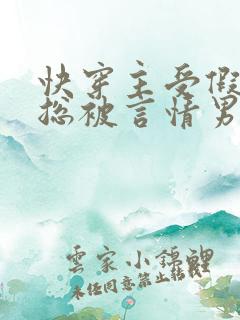 快穿主受假
总被言情男
雲家小錦鯉
未经同意禁止转载